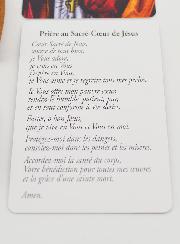 Prière au Sacré-Cœur de Jésus
Cœur Sacré de Jésus,
source de tout bien,
je Vous adore,
je crois en Vous,
j'espère en Vous,
je Vous aime et je regrette tous mes péchés.
Je Vous offre mon pauvre cœur,
rendez-le humble, patient, pur,
et en tout conforme à vos désirs.
Faites, ô bon Jésus,
que je vive en Vous et Vous en moi.
Protégez-moi dans les dangers,
consolez-moi dans les peines et les misères.
Accordez-moi la santé du corps,
Votre bénédiction pour toutes mes œuvres
et la grâce d'une sainte mort.
Amen.